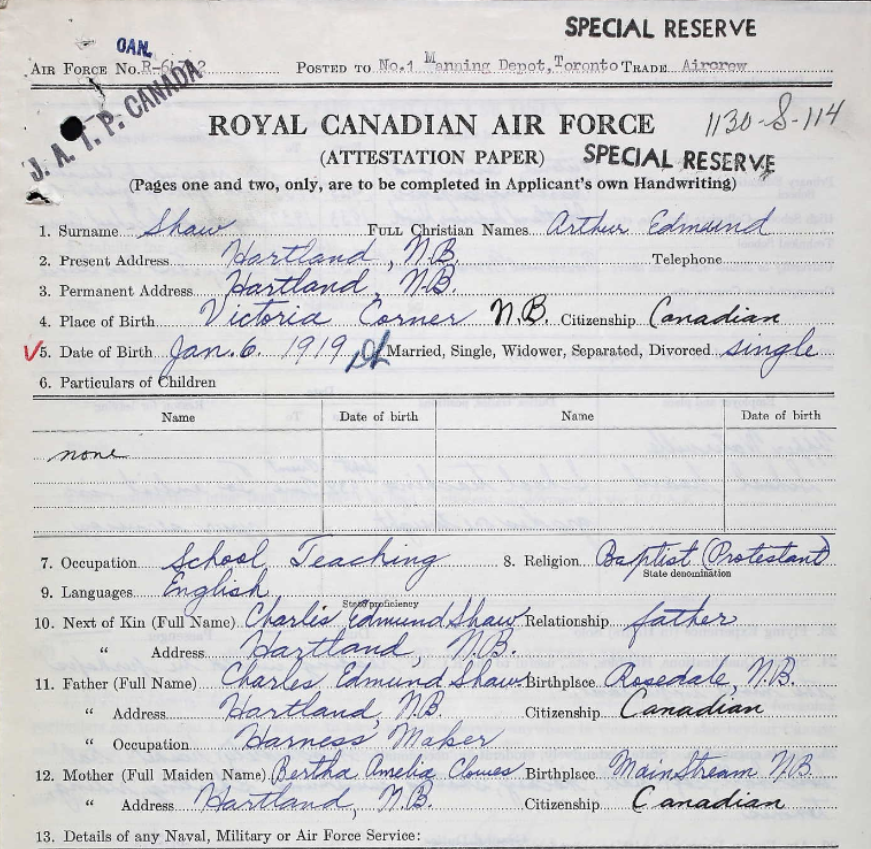 SPECIAL RESERVE
CAN.
AIR FORCE No. POSTED TO No.1 Manning Depot, Toronto TRADE Aircrew
J. A. T. P. CANADA
ROYAL CANADIAN AIR FORCE 1130-S-114
(ATTESTATION PAPER) SPECIAL RESERVE
(Pages one and two, only, are to be completed in Applicant's own Handwriting)
1. Surname Shaw FULL Christian Names Arthur Edmund
2. Present Address Hartland, N.B. Telephone
3. Permanent Address Hartland, N.B.
4. Place of Birth Victoria Corner N.B. Citizenship Canadian
5. Date of Birth Jan. 6. 1919 Married, Single, Widower, Separated, Divorced single
6. Particulars of Children
Name Date of birth Name Date of birth
none
7. Occupation School Teaching 8. Religion Baptist (Protestant)
State denomination
9. Languages English
State proficiency
10. Next of Kin (Full Name) Charles Edmund Shaw Relationship father
" Address Hartland, N.B.
11. Father (Full Name) Charles Edmund Shaw Birthplace Rosedale, N.B.
" Address Hartland, N.B. Citizenship Canadian
" Occupation Harness Maker
12. Mother (Full Maiden Name) Bertha Amelia Clowes Birthplace Mainstream N.B.
" Address Hartland, N.B. Citizenship Canadian
13. Details of any Naval, Military or Air Force Service: